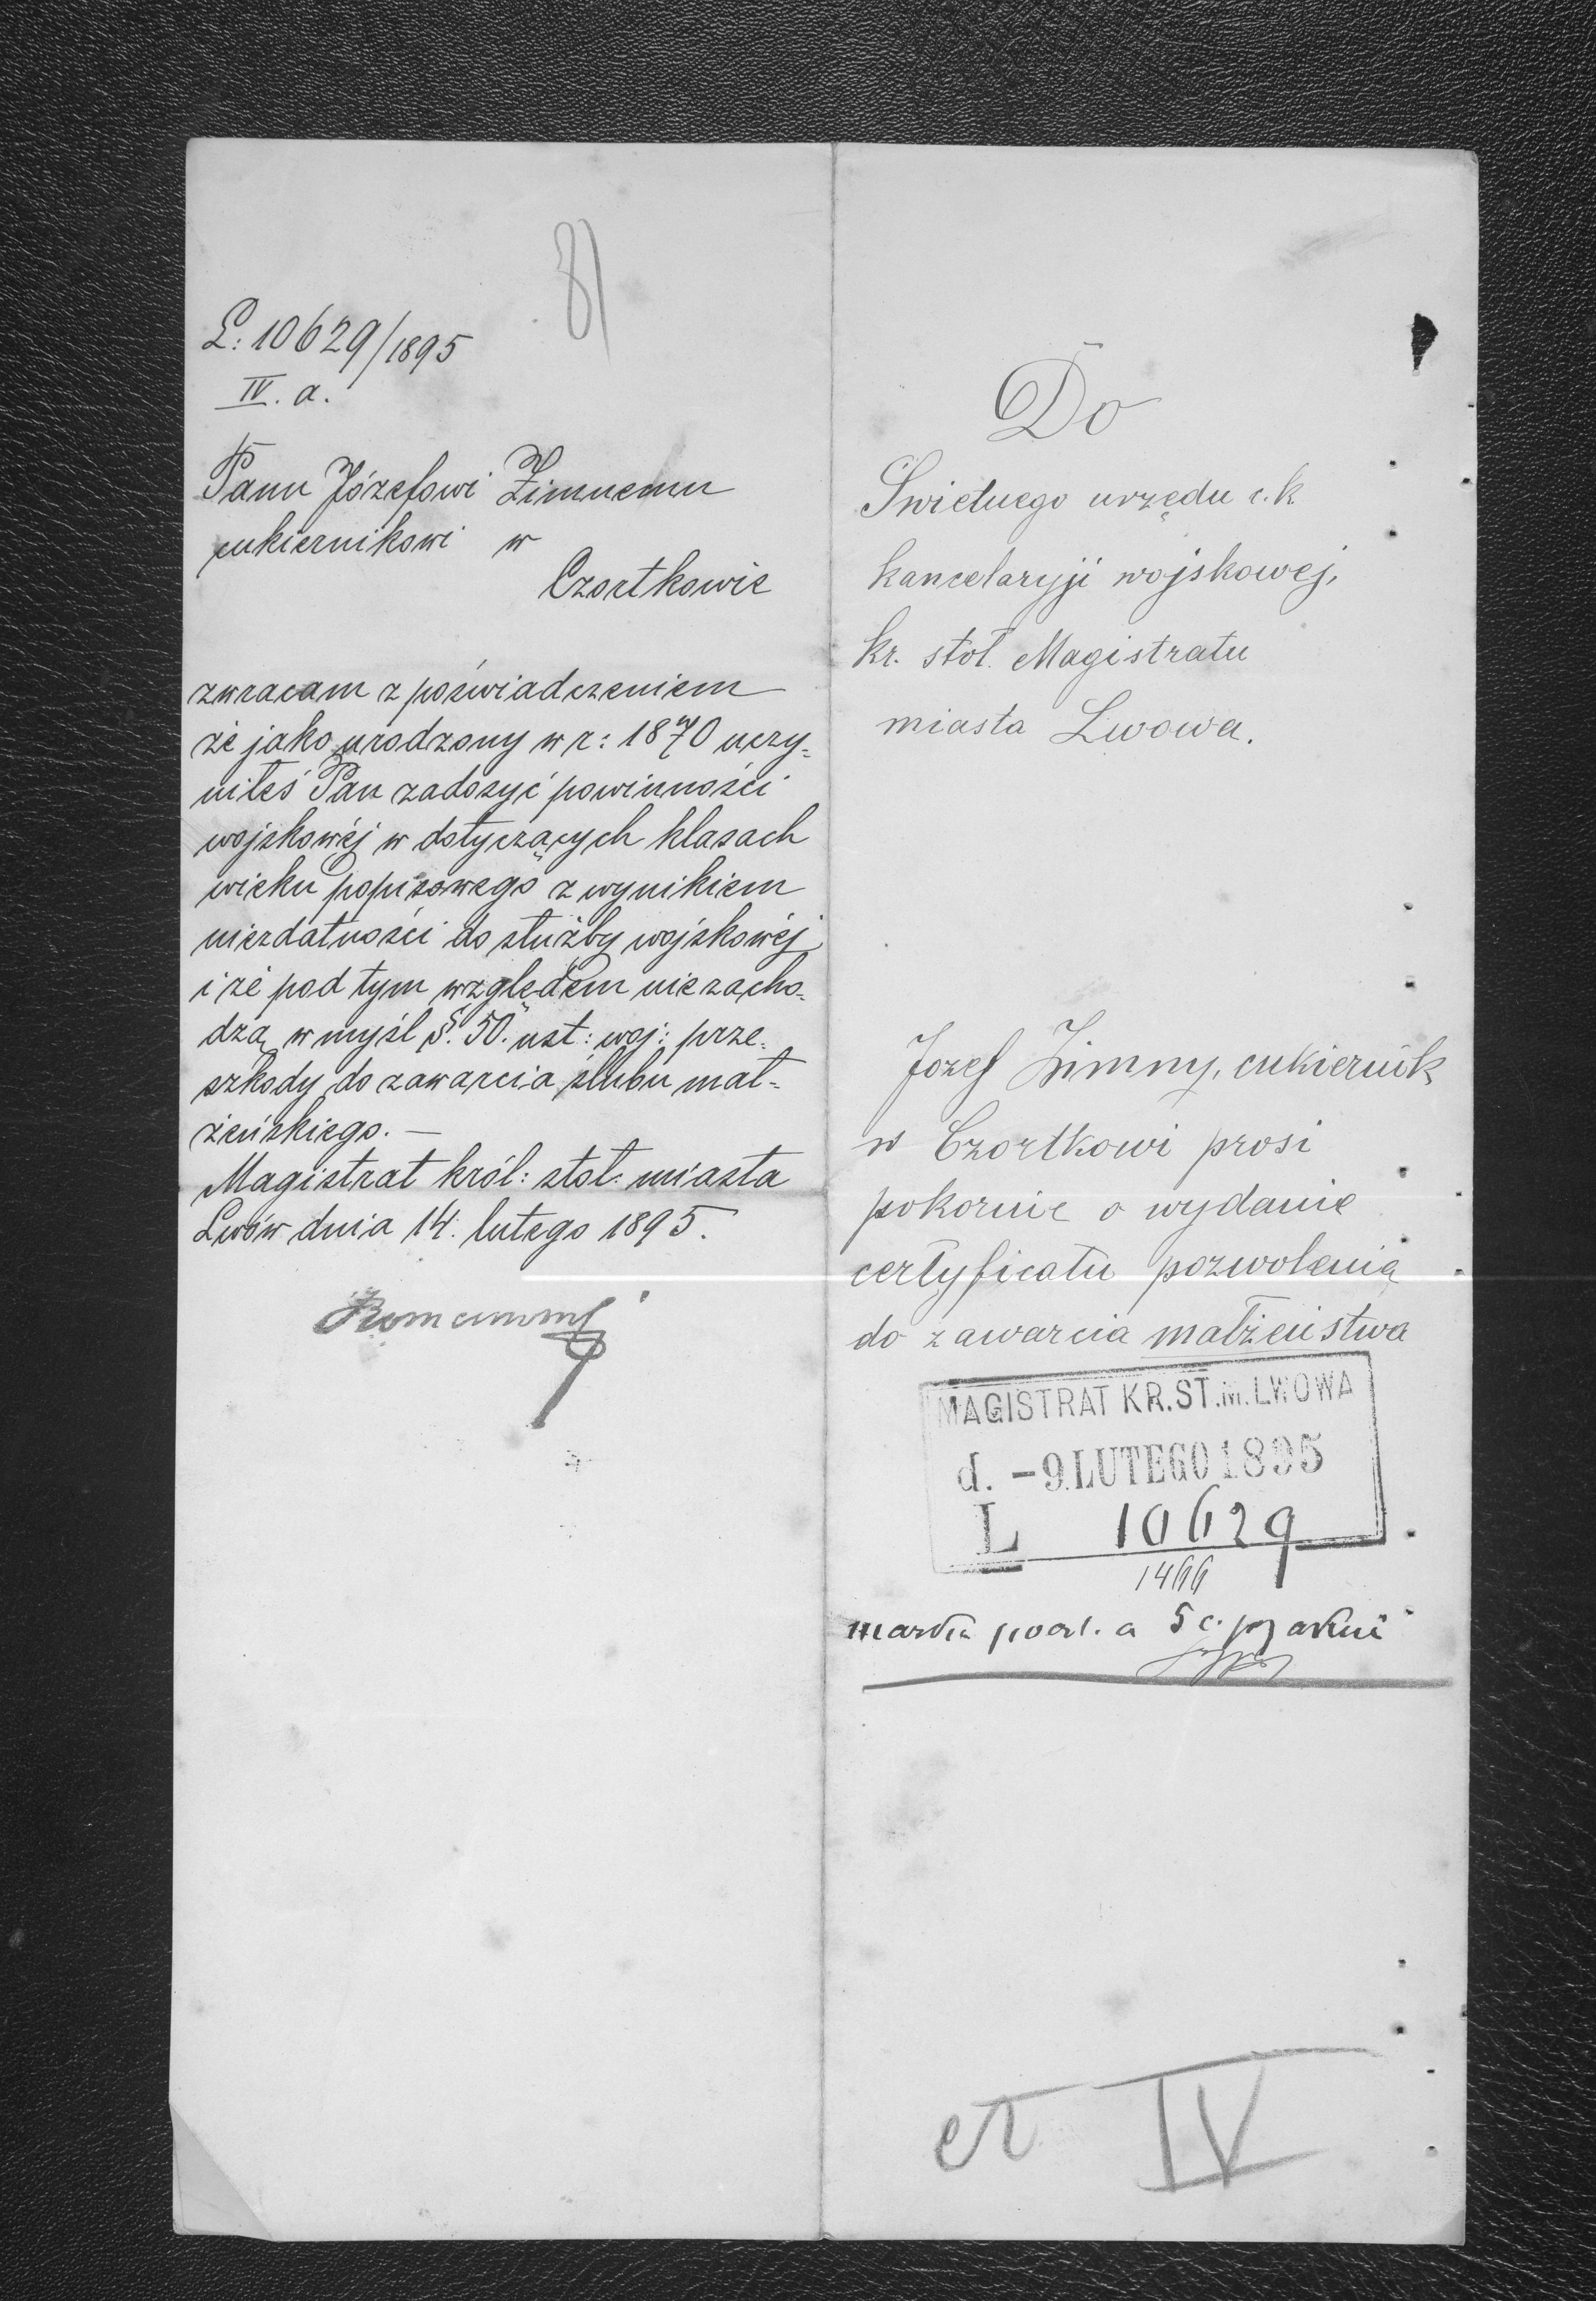 31
L: 10629/1895
IV. a.
Panu Józefowi Zimnemu
cukiernikowi w
Czortkowie
zwracam z poświadczeniem
że jako urodzony w r: 1870 uczy-
niłeś Pan zadosyć powinności
wojskowéj w dotyczących klasach
wieku popisowego z wynikiem
niezdatności do służby wojskowéj
i że pod tym względem nie zacho-
dzą w myśl §. 50. ust: woj: prze-
szkody do zawarcia ślubu mał-
żeńskiego. —
Magistrat król: stoł: miasta
Lwów dnia 14. lutego 1895.
Do
Swietnego urzędu c.k
kancelaryji wojskowej,
kr. stoł. Magistratu
miasta Lwowa.
Jozef Zimny, cukiernik
w Czortkowi prosi
pokornie o wydanie
certyficatu pozwolenia
do zawarcia małżeństwa
MAGISTRAT KR. ST. M. LWOWA
d. -9. LUTEGO 1895
L 10629
1466
a 5 c.
IV